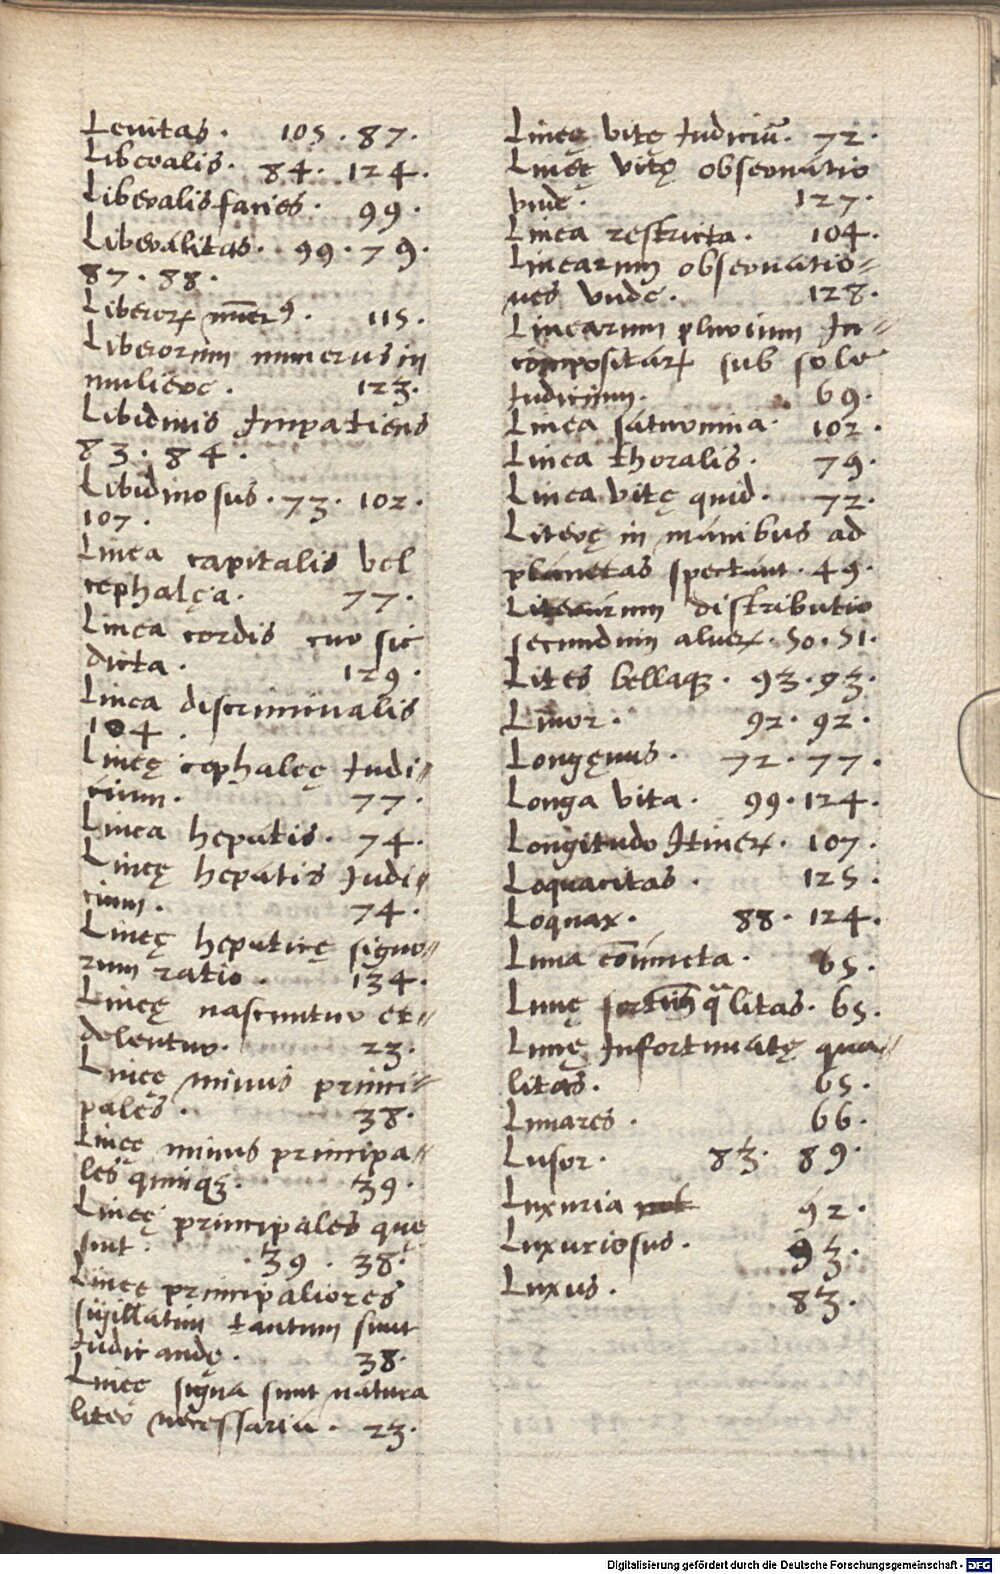 Leuitas · 105 · 87 ·
Liberalis · 84 · 124 ·
Liberalis facies · 99 ·
Liberalitas · 99 · 79 ·
87 · 88 ·
Liberorꝝ nu̅erꝰ · 115 ·
Liberorum numerus in
muliere · 123 ·
Libidinis Impatiens
83 · 84 ·
Libidinosus · 73 · 102 ·
107 ·
Linea capitalis vel
cephalęa · 77 ·
Linea cordis cur sic
dicta · 129 ·
Linea discriminalis
104 ·
Lineę cephalęę Iudi⸗
cium · 77 ·
Linea hepatis · 74 ·
Lineę hepatis Iudi⸗
cium · 74 ·
Lineę hepaticę signo⸗
rum ratio · 134 ·
Lineę nascuntur et⸗
delentur · 23 ·
Lineę minus princi⸗
pales · 38 ·
Lineę minus principa⸗
les quinqꝫ · 39 ·
Lineę principales quę
sint · 39 · 38 ·
Lineę principaliores
sigillatim tantum sunt
Iudicandę · 38 ·
Lineę signa sunt natura
liter necessaria · 23 ·
Lineę vitę Iudiciu̅ · 72 ·
Lineę vitę obseruatio
vnde · 127 ·
Linea restricta · 104 ·
Linearum obseruatio⸗
nes vnde · 128 ·
Linearum plurium In⸗
compositarꝝ sub sole
Iudicium · 69 ·
Linea saturnina · 102 ·
Linea thoralis · 79 ·
Linea vitę quid · 72 ·
Literę in manibus ad
planetas spectant · 49 ·
Literarum distributio
secundum aluerꝝ · 50 · 51 ·
Lites bellaqꝫ · 93 · 93 ·
Liuor · 92 · 92 ·
Longęuus · 72 · 77 ·
Longa vita · 99 · 124 ·
Longitudo Itinerꝝ · 107 ·
Loquacitas · 125 ·
Loquax · 88 · 124 ·
Luna co̅iuncta · 65 ·
Lunę qualitas · 65 ·
Lunę Infortunatę qua⸗
litas · 65 ·
Lunares · 66 ·
Lusor · 83 · 89 ·
Luxuria 92 ·
Luxuriosus · 93 ·
Luxus · 83 ·
Digitalisierung gefördert durch die Deutsche Forschungsgemeinschaft - DFG